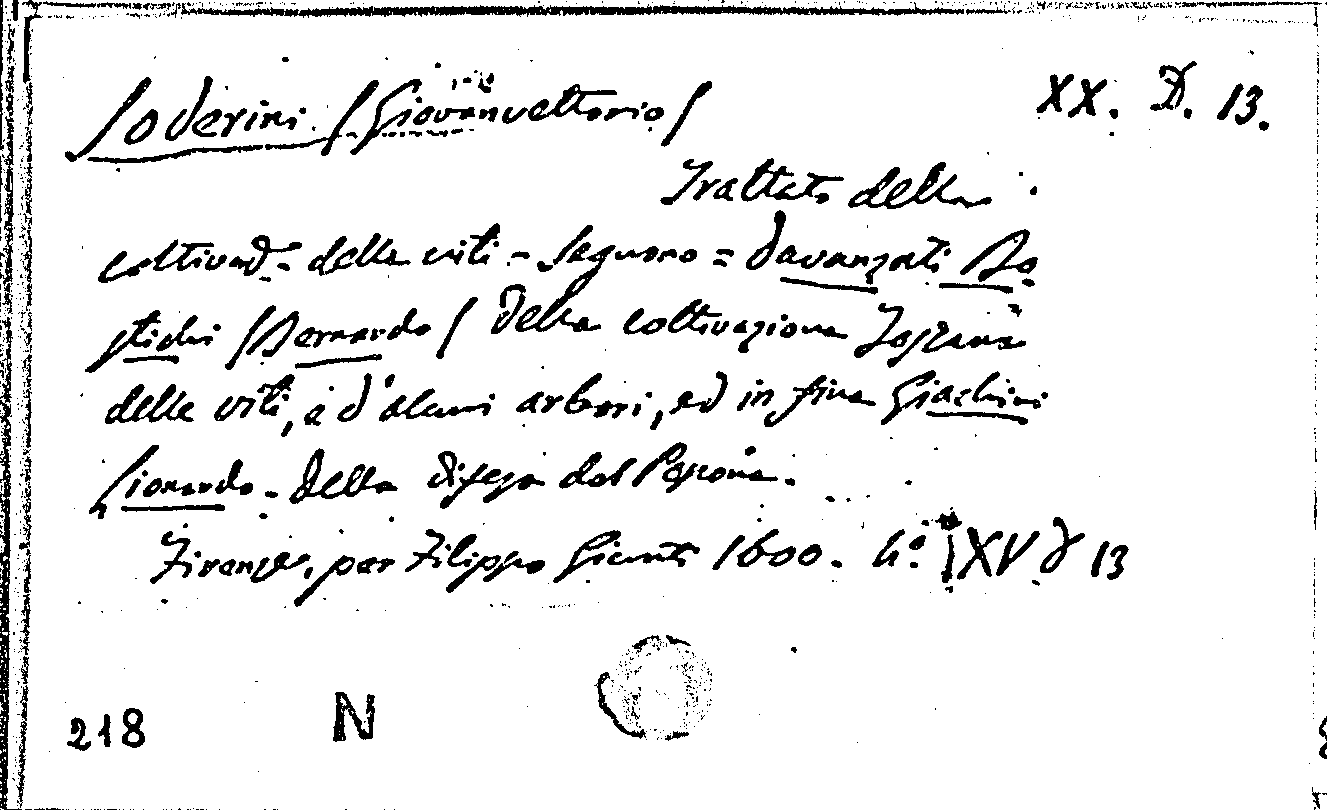 Soderini (Giovanvettorio) XX. D. 13.
Trattato della
coltivaz.e delle viti - Seguono = Davanzati Bo
stichi (Bernardo) Della coltivazione Toscana
delle viti, e d'alcuni arbori, ed in fine Giachini
Lionardo. Della difesa del Popone.
Firenze, per Filippo Giunti 1600. 4.º XV D 13
218 N